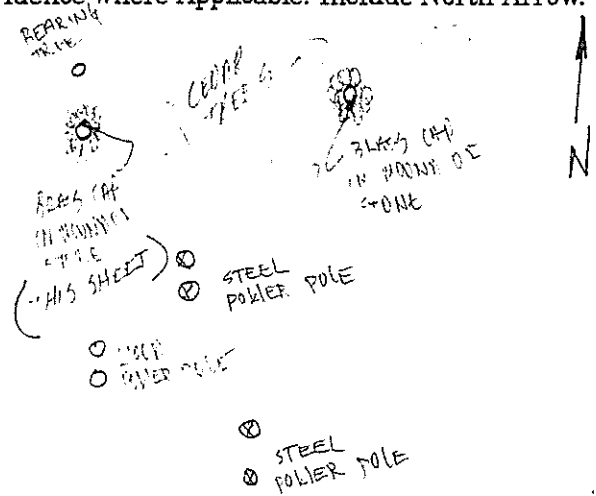 idence where Applicable. Include North Arrow.
BEARING
TREE
CEDAR
TREES
BRASS CAP
IN MOUND OF
STONE
N
BRASS CAP
IN MOUND
(THIS SHEET)
STEEL
POWER POLE
POWER POLE
STEEL
POWER POLE